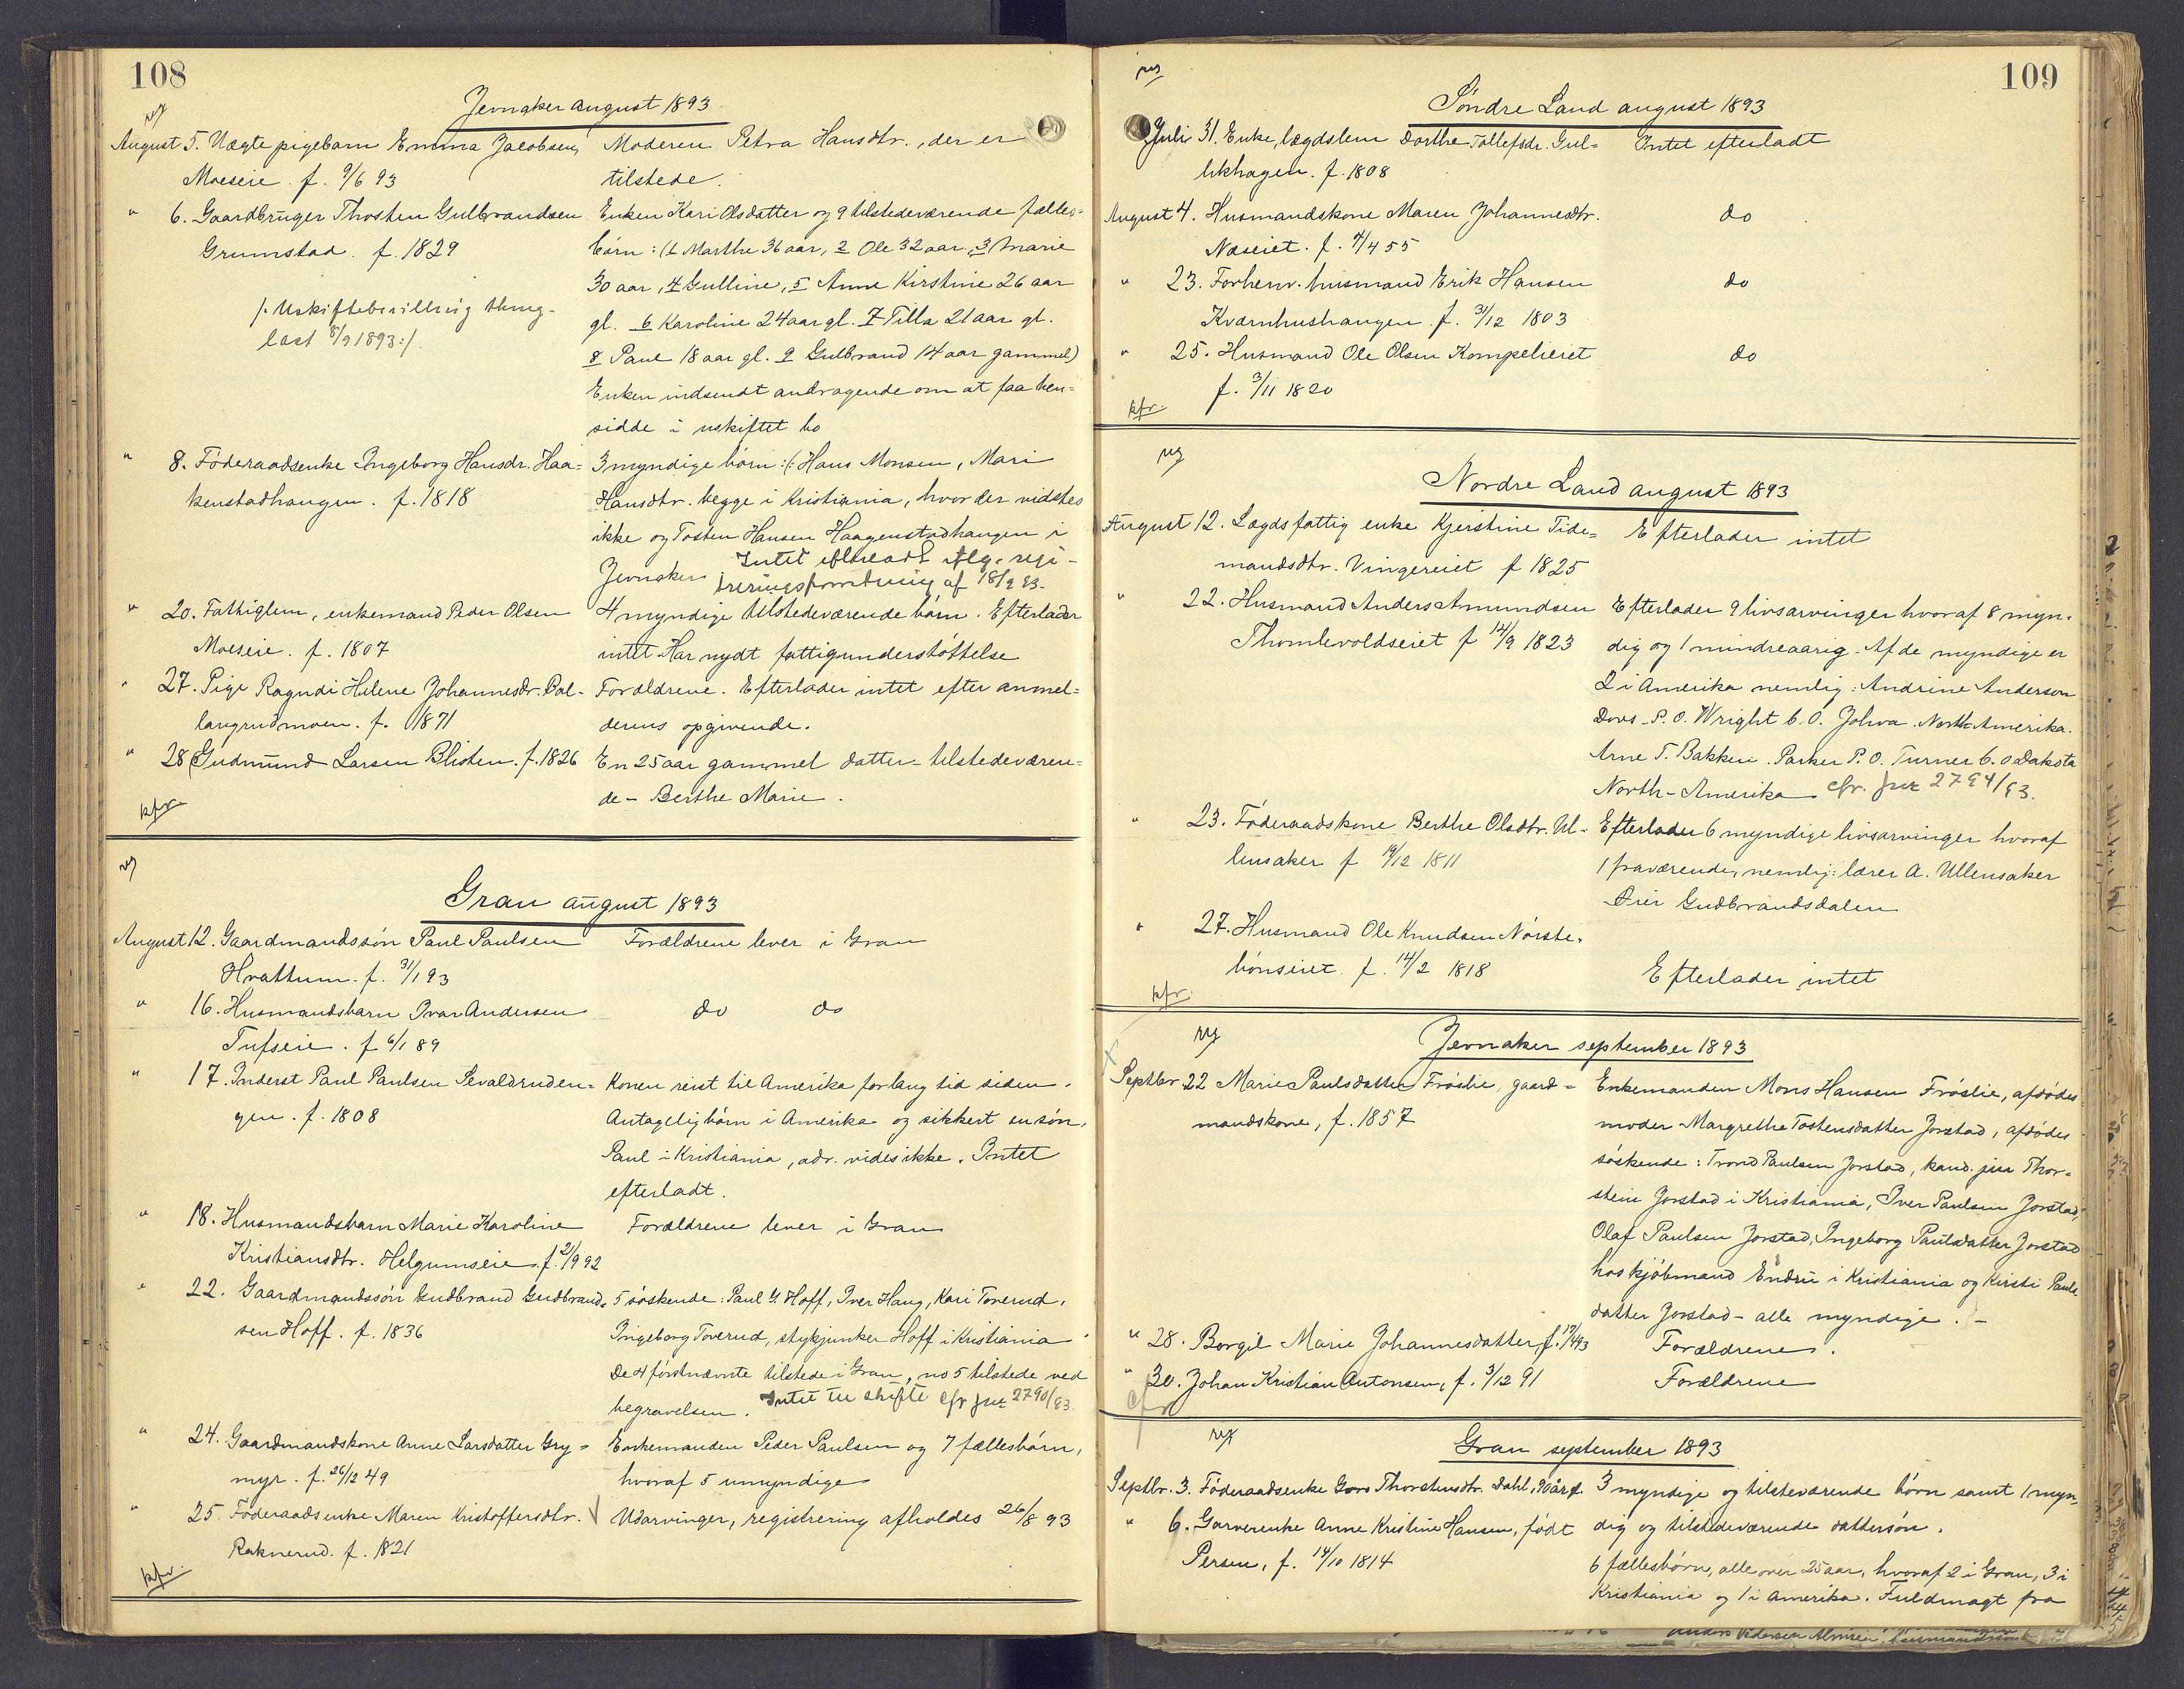 108
Jevnaker august 1893
August 5. Uægte pigebarn Emma Jacobsen
Moeseie. f. 9/6 93
Moderen Petra Hansdtr., der er
tilstede.
" 6. Gaardbruger Thosten Gulbrandsen
Grumstad. f. 1829
/: Uskiftebevilling thing-
læst 8/9 1893 :/.
Enken Kari Olsdatter og 9 tilstedeværende fælles-
børn: (1 Marthe 36 aar, 2 Ole 32 aar, 3 Marie
30 aar, 4 Gulline, 5 Anne Kirstine 26 aar
gl. 6 Karoline 24 aar gl. 7 Tilla 21 aar gl.
8 Paul 18 aar gl. 9 Gulbrand 14 aar gammel)
Enken indsendt andragende om at faa hen-
sidde i uskiftet bo
" 8. Föderaadsenke Ingeborg Hansdr. Haa-
kenstadhangen. f. 1818
3 myndige börn :/: Hans Monsen, Mari
Hansdtr. begge i Kristiania, hvor der vidstes
ikke og Tosten Hansen Haagenstadhangen i
Jevnaker Intet efterladt
af 18/9 93.
" 20. Fattiglem, enkemand Peder Olsen
Moeseie. f. 1807
4 myndige tilstedeværende börn. Efterlader
intet. Har nydt fattigunderstøttelse
" 27. Pige Ragndi Helene Johannesdr. Bal-
langrudmoen. f. 1871
Forældrene. Efterlader intet efter anmel-
derens opgivende.
" 28 Gudmund Larsen Blisten. f. 1826
En 25 aar gammel datter - tilstedeværen-
de - Berthe Marie.
kfr.
Gran august 1893
August 12. Gaardmandssøn Paul Paulsen
Hvattum. f. 31/1 93
Forældrene lever i Gran
" 16. Husmandsbarn Ivar Andersen
Tufseie. f 6/1 89
do do
" 17. Inderst Paul Paulsen Sevaldruden-
gen. f. 1808
Konen reist til Amerika for lang tid siden.
Antagelig börn i Amerika og sikkert en søn,
Paul i Kristiania, adr. vides ikke. Intet
efterladt.
" 18. Husmandsbarn Marie Karoline
Kristiansdtr. Helgumseie f. 21/9 92
Forældrene lever i Gran
" 22. Gaardmandssøn Gudbrand Gudbrand-
sen Hoff. f. 1836
5 søskende: Paul G. Hoff, Iver Haug, Kari Toverud,
Ingeborg Toverud, stykjunker Hoff i Kristiania.
De 4 førstnævnte tilstede i Gran, no 5 tilstede ved
begravelsen. Intet til skifte cfr jnr 2790/93
" 24. Gaardmandskone Anne Larsdatter Gry-
myr. f. 26/12 49
Enkemanden Peder Paulsen og 7 fællesbørn,
hvoraf 5 umyndige
" 25. Föderaadsenke Maren Kristoffersdtr.
Raknerud. f. 1821
Udarvinger, registrering afholdes 26/8 93
kfr.
109
Söndre Land august 1893
Juli 31. Enke, lægdslem Dorthe Tollefsdr. Gul-
likhagen. f. 1808
Intet efterladt
August 4. Husmandskone Maren Johannesdtr.
Næseiet. f. 4/4 55
do
" 23. Forhenv. husmand Erik Hansen
Kværnhushangen f. 31/12 1803
do
" 25. Husmand Ole Olsen Kompelieiet
f. 3/11 1820
do
kfr.
Nordre Land august 1893
August 12. Lægdsfattig enke Kjerstine Tide-
mandsdtr. Vingereiet f 1825
Efterlader intet
" 22. Husmand Anders Amundsen
Thomlevoldseiet f 14/9 1823
Efterlader 9 livsarvinger hvoraf 8 myn-
dig og 1 mindreaarig. Af de myndige er
2 i Amerika nemlig: Andrine Anderson
Dovs P.O. Wright C.O. Johva. North Amerika.
Arne T. Bakken. Parker P.O. Turner C.O Dakota
North-Amerika cfr. jnr 2794/93.
" 23. Föderaadskone Berthe Olsdtr. Ul-
lensaker f 19/12 1811
Efterlader 6 myndige livsarvinger hvoraf
1 fraværende, nemlig: lærer A. Ullensaker
Öier Gudbrandsdalen
" 27. Husmand Ole Knudsen Nörste-
bönseiet. f. 14/2 1818
Efterlader intet
kfr.
Jevnaker september 1893
Septbr 22 Marie Paulsdatter Fröslie, gaard-
mandskone, f. 1857
Enkemanden Mons Hansen Fröslie, afdödes
moder Margrethe Tostensdatter Jorstad, afdödes
söskende: Trond Paulsen Jorstad, kand. jur Thor-
stein Jorstad i Kristiania, Iver Paulsen Jorstad,
Olaf Paulsen Jorstad, Ingeborg Paulsdatter Jorstad
hos kjöbmand Endru i Kristiania og Kirsti Pauls
datter Jorstad - alle myndige. -
" 28. Borgil Marie Johannesdatter, f. 17/4 93
Forældrene.
" 30. Johan Kristian Antonsen, f. 3/12 91
Forældrene
cfr
Gran september 1893
Septbr. 3. Föderaadsenke Goro Thorstensdtr. Dahl, 90 år gl.
3 myndige og tilsteværende börn samt 1 myn-
dig og tilstedeværende dattersön.
" 6. Garverenke Anne Kristine Hansen, født
Persen, f. 14/10 1814
6 fællesbörn, alle over 25 aar, hvoraf 2 i Gran, 3 i
Kristiania og 1 i Amerika. Fuldmagt fra